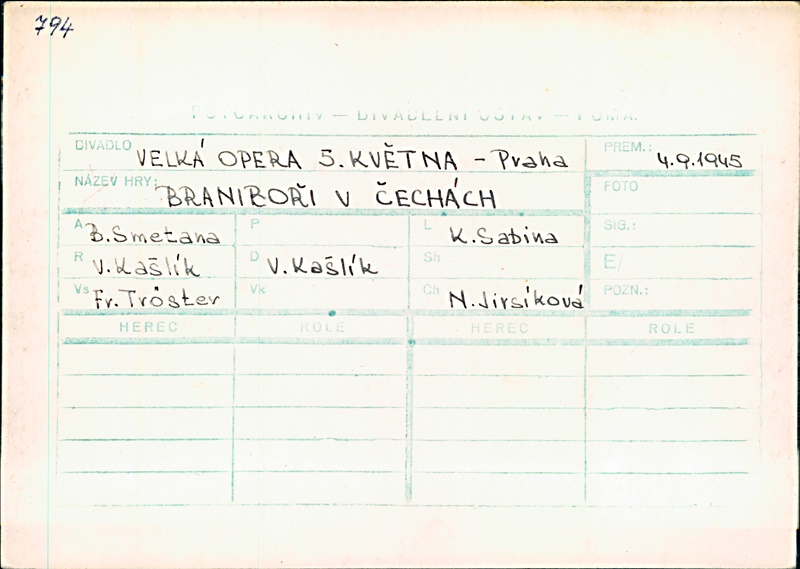 794
FOTOARCHIV — DIVADELNÍ ÚSTAV —
DIVADLO VELKÁ OPERA 5. KVĚTNA - Praha PREM.: 4.9.1945
NÁZEV HRY: BRANIBOŘI V ČECHÁCH FOTO
A B. Smetana P L K. Sabina SIG.:
R V. Kašlík D V. Kašlík Sh E/
Vs Fr. Tröster Vk Ch N. Jirsíková POZN.:
HEREC ROLE HEREC ROLE